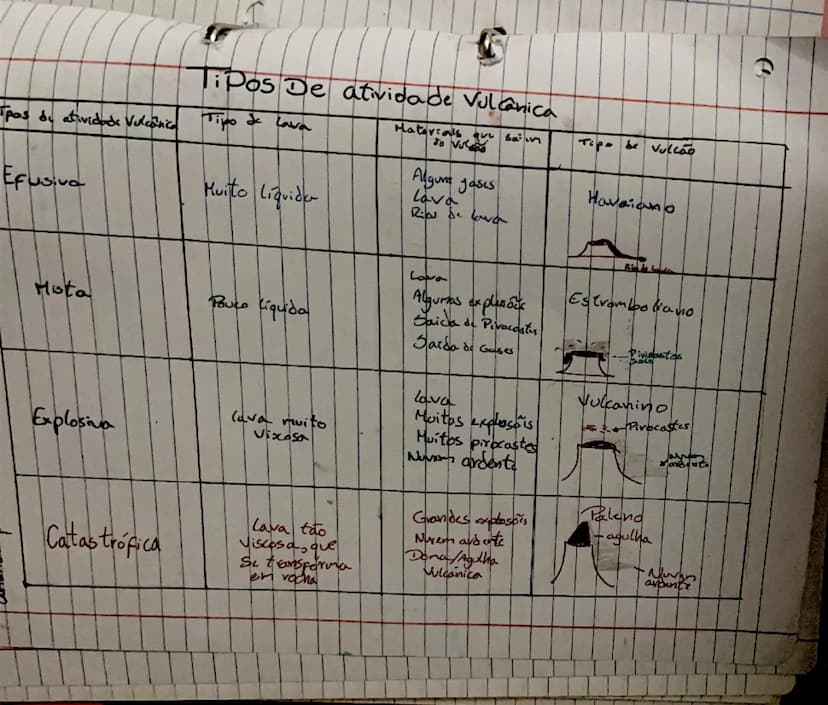 Tipos De atividade Vulcânica
Tipos de atividade Vulcânica
Tipo de Lava
Materiais que saim
do Vulcão
Tipo de Vulcão
Efusiva
Muito líquida
Alguns gases
Lava
Rios de lava
Havaiano
Rio de lava
Mista
Pouco líquida
Lava
Algumas explosões
Saida de Pirocastes
Saida de Gases
Estromboliano
Pirocastos
Explosiva
Lava muito
Viscosa
Lava
Muitas explosões
Muitos pirocastes
Nuvem ardente
Vulcanino
Pirocastes
Nuvem
ardente
Catastrófica
Lava tão
viscosa, que
se transforma
em rocha
Grandes explosões
Nuvem ardente
Doma/Agulha
Vulcânica
Peleno
agulha
Nuvem
ardente